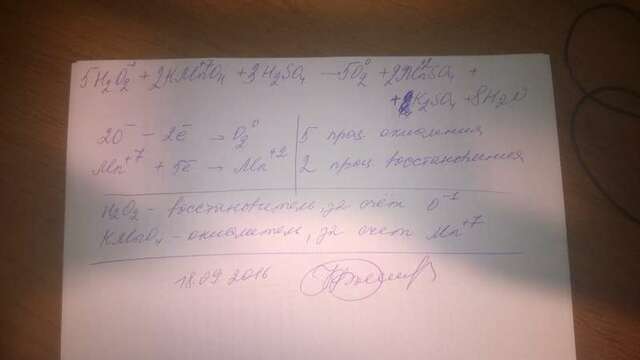 5H₂O₂⁻¹ + 2KMn⁺⁷O₄ + 3H₂SO₄ → 5O₂⁰ + 2Mn⁺²SO₄ +
+ K₂SO₄ + 8H₂O
2O⁻ - 2ē → O₂⁰ | 5 проц. окисления
Mn⁺⁷ + 5ē → Mn⁺² | 2 проц. восстановления
H₂O₂ - восстановитель, за счёт O⁻¹
KMnO₄ - окислитель, за счет Mn⁺⁷
18.09.2016